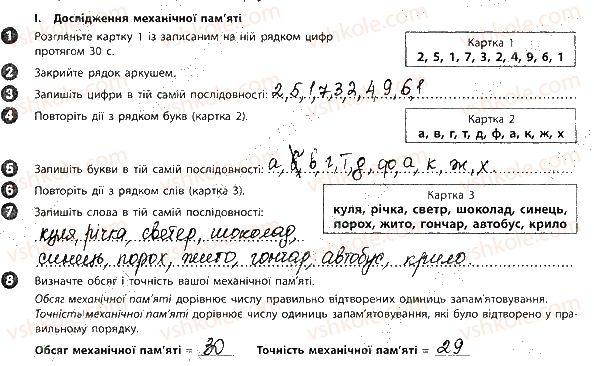 I. Дослідження механічної пам'яті
1 Розгляньте картку 1 із записаним на ній рядком цифр
протягом 30 с.
Картка 1
2, 5, 1, 7, 3, 2, 4, 9, 6, 1
2 Закрийте рядок аркушем.
3 Запишіть цифри в тій самій послідовності: 2,5,1,7,3,2,4,9,6,1
4 Повторіть дії з рядком букв (картка 2).
Картка 2
а, в, г, т, д, ф, а, к, ж, х
5 Запишіть букви в тій самій послідовності: а, в, г, т, д, ф, а, к, ж, х.
6 Повторіть дії з рядком слів (картка 3).
Картка 3
куля, річка, светр, шоколад, синець,
порох, жито, гончар, автобус, крило
7 Запишіть слова в тій самій послідовності:
куля, річка, светер, шоколад,
синець, порох, жито, гончар, автобус, крило.
8 Визначте обсяг і точність вашої механічної пам'яті.
Обсяг механічної пам'яті дорівнює числу правильно відтворених одиниць запам'ятовування.
Точність механічної пам'яті дорівнює числу одиниць запам'ятовування, які було відтворено у пра-
вильному порядку.
Обсяг механічної пам'яті = 30 Точність механічної пам'яті = 29